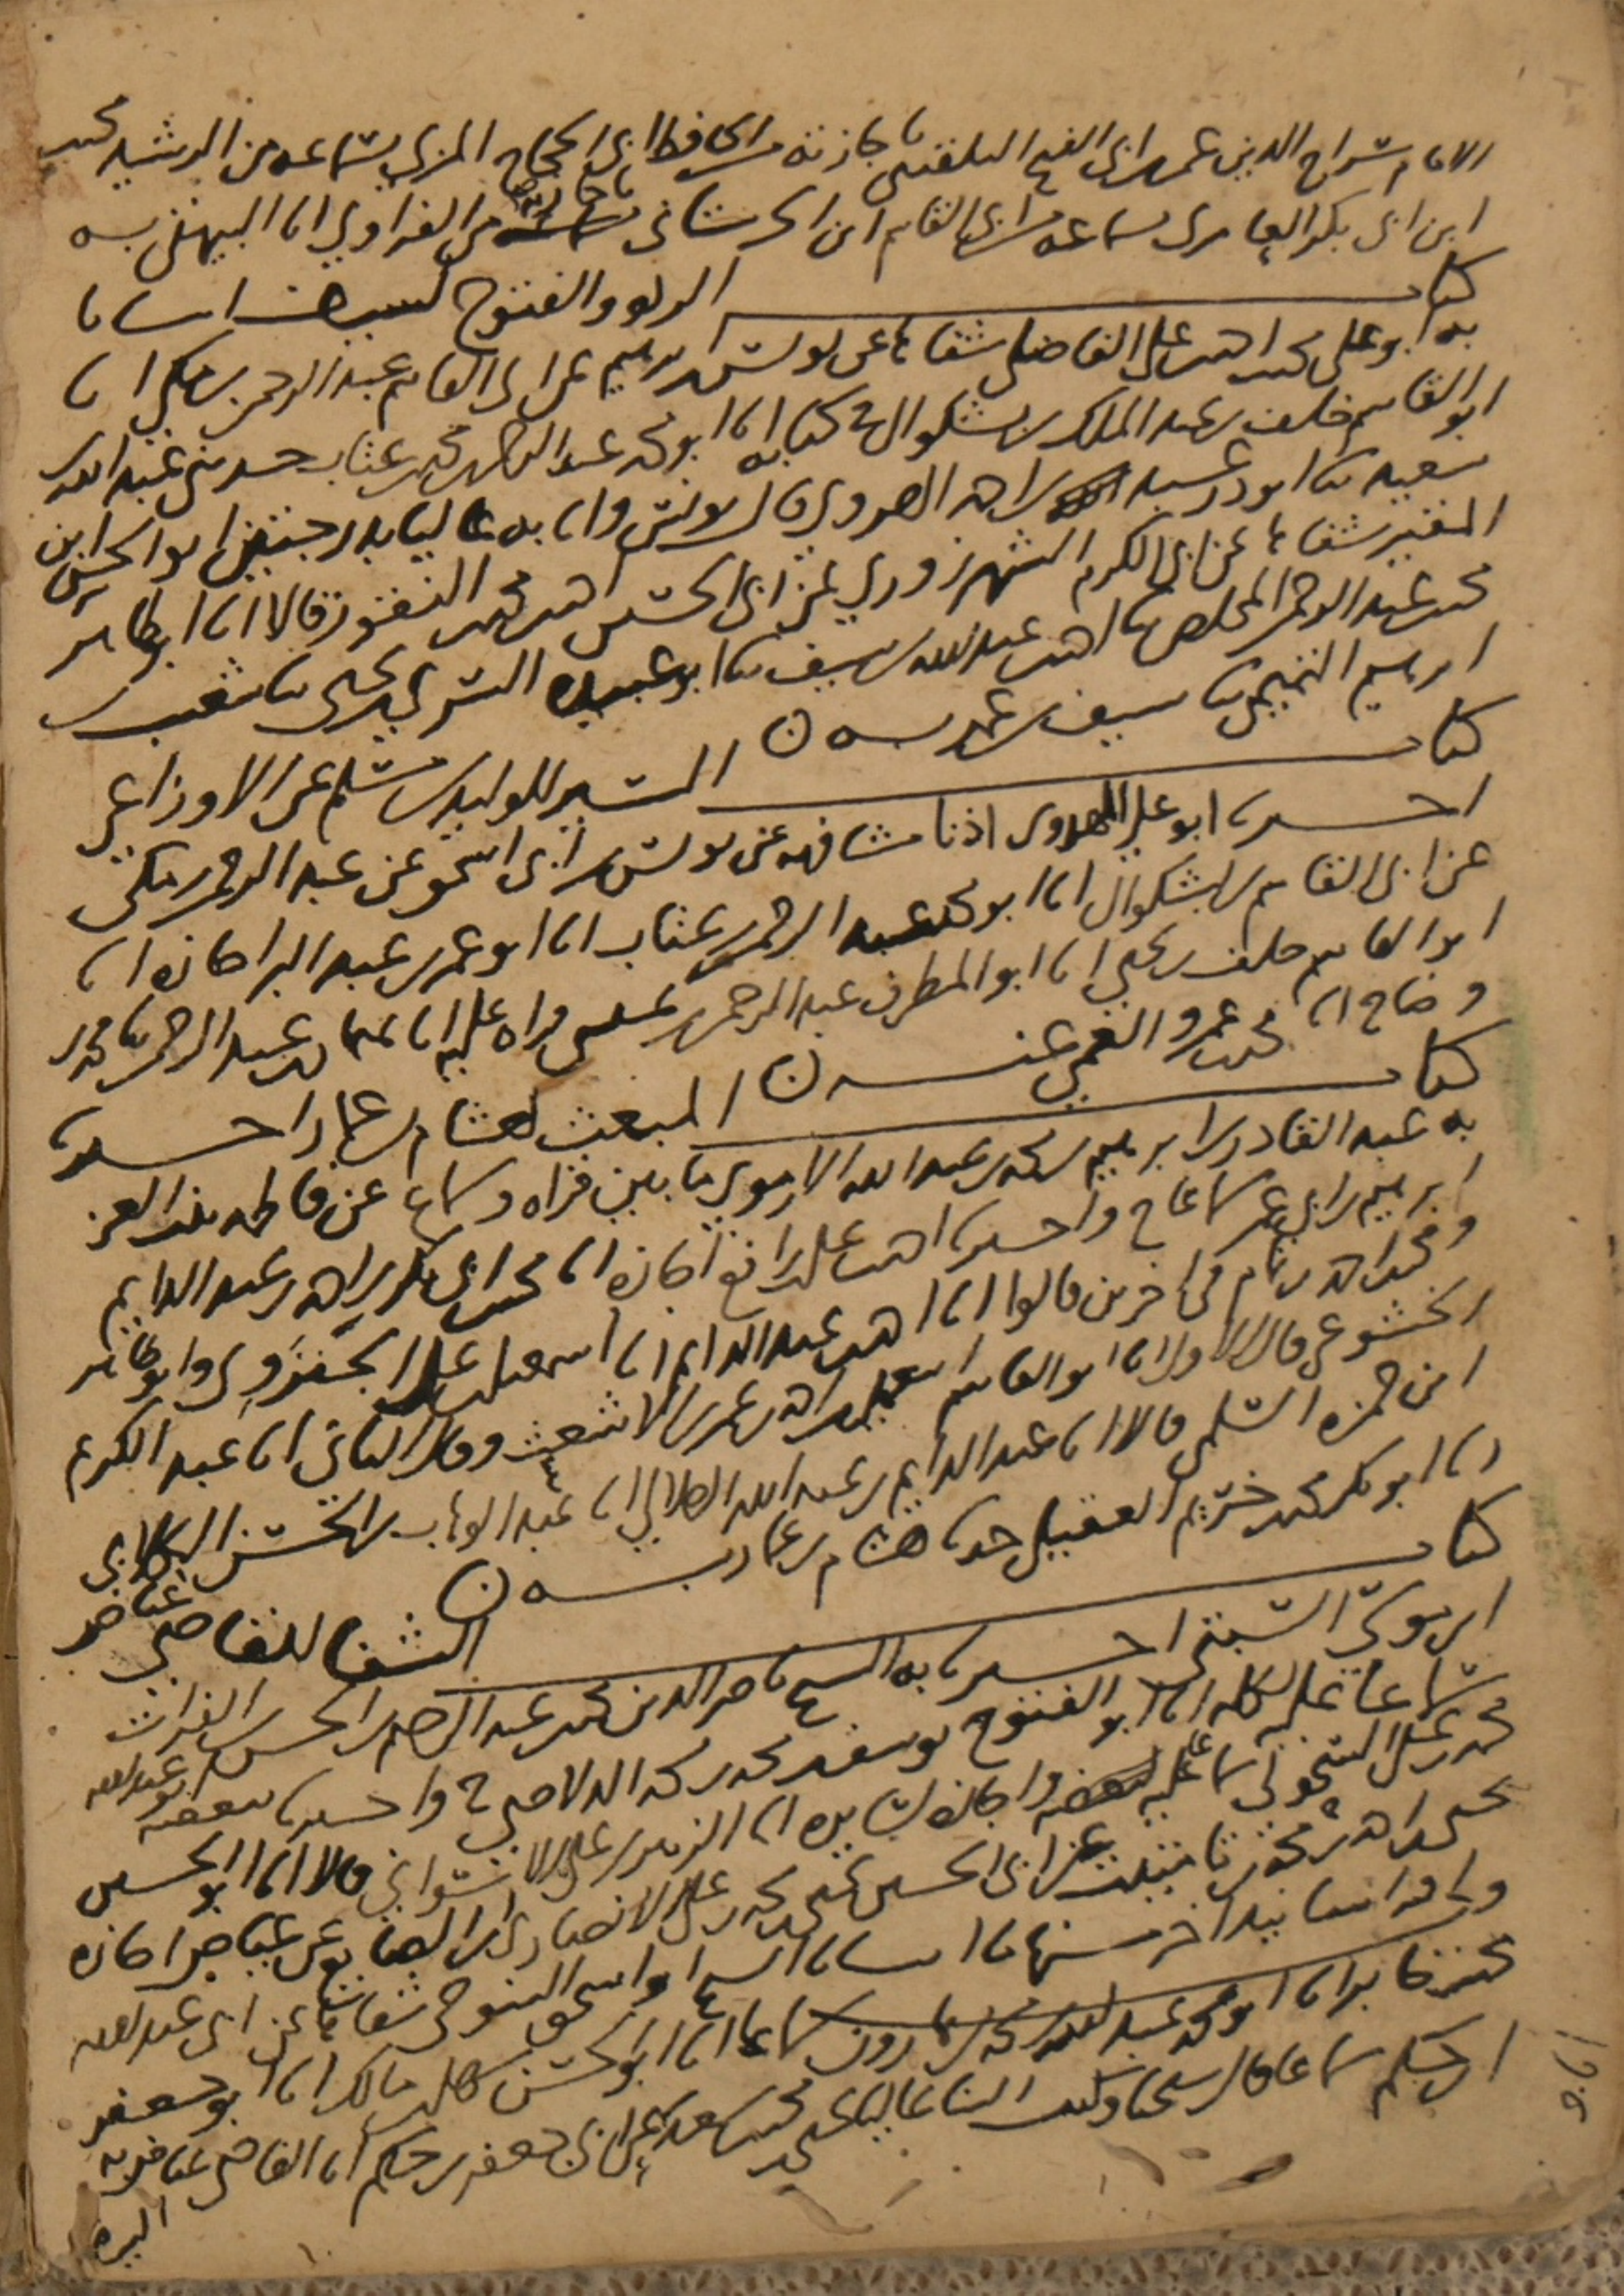 الامام سراج الدين عمر بن ابي الفتح البلقيني باجازته من الحافظ ابي الحجاج المزي بسماعه من الرشيد محمد
ابن ابي بكر العامري بسماعه من ابي القاسم ابن الحرستاني باجازته من الفراوي انا البيهقي به
كتاب الردة والفتوح لسيف انبانا
به ابو علي محمد بن احمد بن علي الفاضلي شفاها عن يونس بن ابرهيم عن ابي القاسم عبد الرحمن بن مكي انا
ابو القاسم خلف بن عبد الملك بن بشكوال في كتابه انا ابو محمد عبد الرحمن بن محمد بن عتاب حدثني عبد الله بن
سعيد ثنا ابو ذر عبد بن احمد الهروي قال يونس وانا به عاليا بدرجتين ابو الحسن ابن
المقير شفاها عن ابي الكرم الشهرزوري عن ابي الحسين احمد بن محمد النقور قالا انا ابو طاهر
محمد بن عبد الرحمن المخلص ثنا احمد بن عبد الله بن سيف ثنا ابو عبيدة السري بن يحيى ثنا شعيب بن
ابرهيم التميمي ثنا سيف بن عمر به
كتاب السير للوليد بن مسلم عن الاوزاعي
اخبرنا ابو علي المهدوي اذنا مشافهة عن يونس بن ابي اسحق عن عبد الرحمن بن مكي
عن ابي القاسم بن بشكوال انا ابو محمد عبد الرحمن بن عتاب انا ابو عمر بن عبد البر اجازة انا
ابو القاسم خلف بن يحيى انا ابو المطرف عبد الرحمن بن عيسى قراه عليه انا عبد الرحمن ثنا محمد بن
وضاح انا محمد بن عمرو الغزي عنه
كتاب المبعث لهشام بن عمار اخبرنا
به عبد القادر بن ابرهيم بن محمد بن عبد الله الارموي ما بين قراه وسماع عن فاطمة بنت العز
ابرهيم بن ابي عمر سماعا ح واخبرنا احمد بن علي بن رافع اجازة انا محمد بن ابي بكر بن احمد بن عبد الدايم
ومحمد بن احمد بن تمام في اخرين قالوا انا احمد بن عبد الدايم انا اسمعيل بن علي الجنزوي وابو طاهر
الخشوعي قال الاول انا ابو القاسم اسمعيل بن احمد بن عمر بن الاشعث وقال الثاني انا عبد الكريم
ابن حمزة السلمي قالا انا عبد الدايم بن عبد الله الهلالي انا عبد الوهاب بن الحسن الكلابي
انا ابو بكر محمد بن خريم العقيلي حدثنا هشام بن عمار به
كتاب الشفا للقاضي عياض
ابن موسى السبتي اخبرنا به الشيخ ناصر الدين محمد بن عبد الرحيم بن الحسن بن الفرات
سماعا عليه لكله انا ابو الفتوح يوسف بن محمد بن محمد الدلاصي ح واخبرنا ببعضه ابو عبد الله
محمد بن علي السحولي سماعا عليه واجازة لسايره انا الزبير بن علي الاسواني قالا انا ابو الحسين
يحيى بن احمد بن محمد بن تامتيت عن ابي الحسين يحيى بن محمد بن علي الانصاري ابن الصايغ عن عياض اجازة
ولي فيه اسانيد اخر منها ما انبانا الشيخ ابو اسحق التنوخي شفاها عن ابي عبد الله
بن جابر انا ابو محمد عبد الله بن محمد بن هارون سماعا انا ابو الحسن سهل بن مالك انا ابو جعفر
بن حكم سماعا قال شيخنا وكتب الينا عاليا يحيى بن محمد بن سعد عن ابي جعفر بن حكم انا القاضي عياض به
البردة